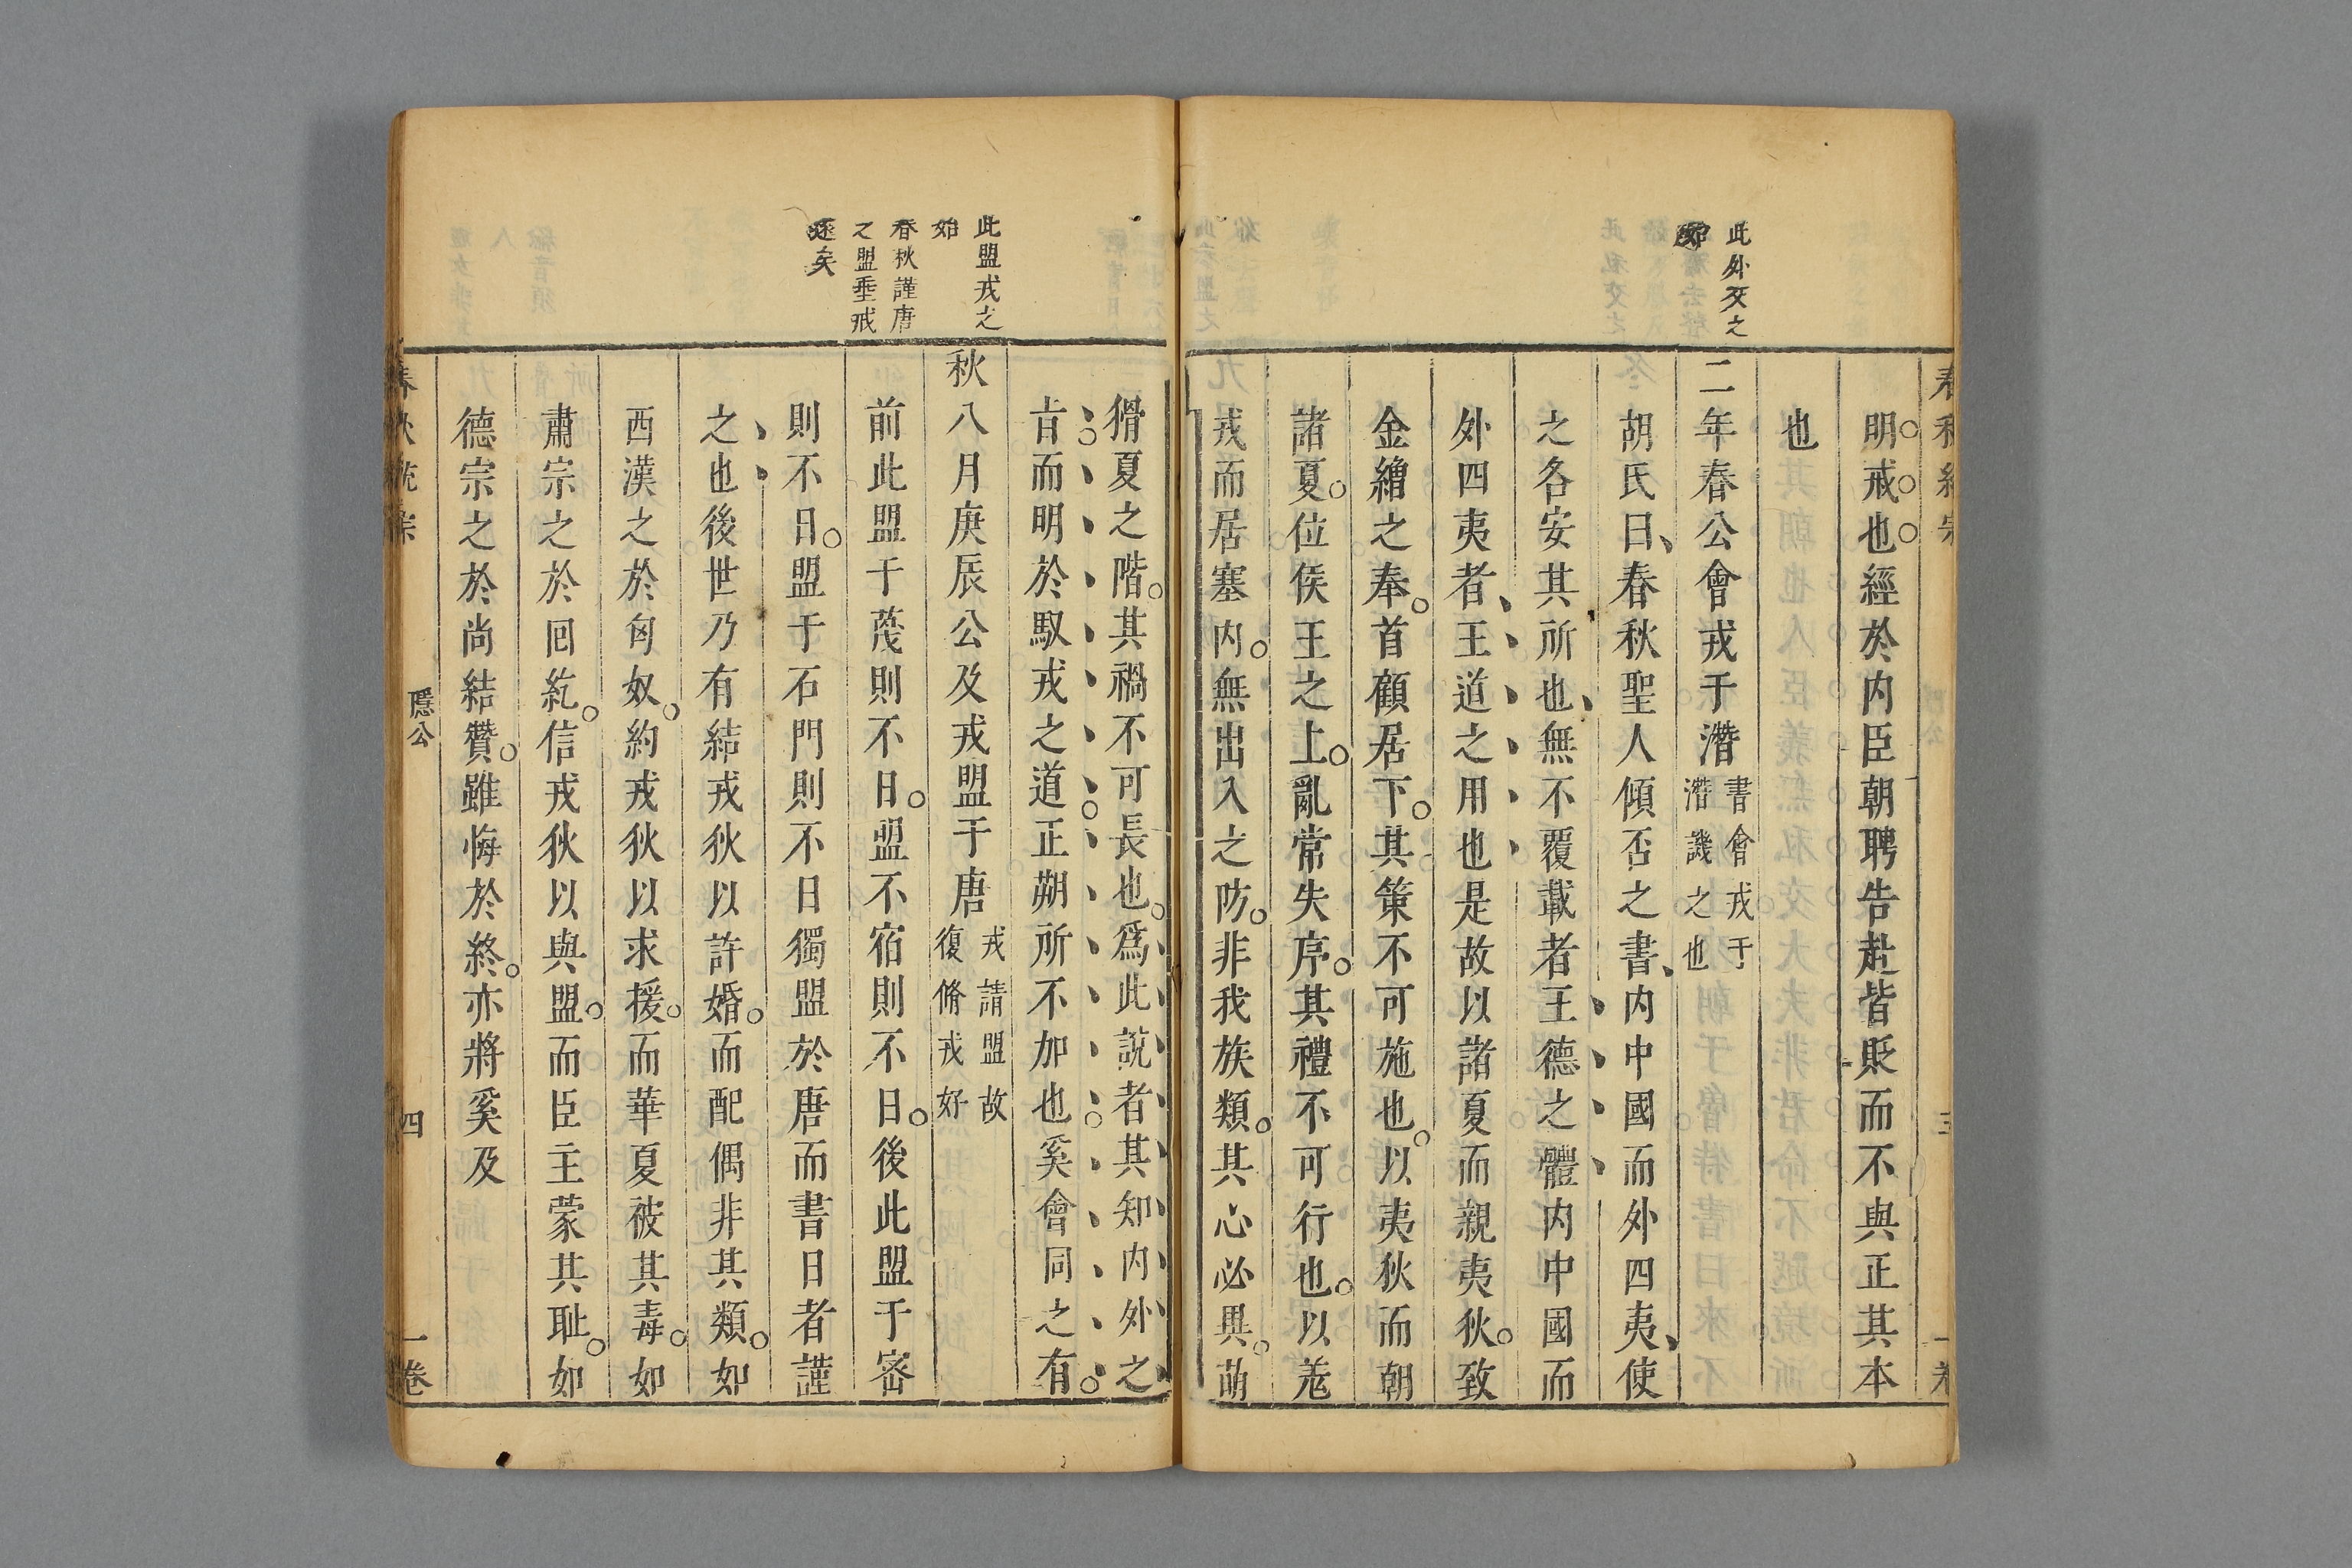 明戒也經於内臣朝聘告赴皆貶而不與正其本
也
此外交之
二年春公會戎于潛書會戎于
潛譏之也
胡氏曰春秋聖人傾否之書内中國而外四夷使
之各安其所也無不覆載者王德之體内中國而
外四夷者王道之用也是故以諸夏而親夷狄致
金繒之奉首顧居下其策不可施也以夷狄而朝
諸夏位侯王之上亂常失序其禮不可行也以羌
戎而居塞内無出入之防非我族類其心必異萌
猾夏之階其禍不可長也爲此說者其知内外之
㫖而明於馭戎之道正朔所不加也奚會同之有
此盟戎之
始
秋八月庚辰公及戎盟于唐戎請盟故
復脩戎好
春秋謹唐
之盟垂戒
遠矣
前此盟于蔑則不日盟不宿則不日後此盟于密
則不日盟于石門則不日獨盟於唐而書日者謹
之也後世乃有結戎狄以許婚而配偶非其類如
西漢之於匈奴約戎狄以求援而華夏被其毒如
肅宗之於回紇信戎狄以與盟而臣主蒙其耻如
德宗之於尚結贊雖悔於終亦將奚及
春秋統宗 隱公 四 一卷